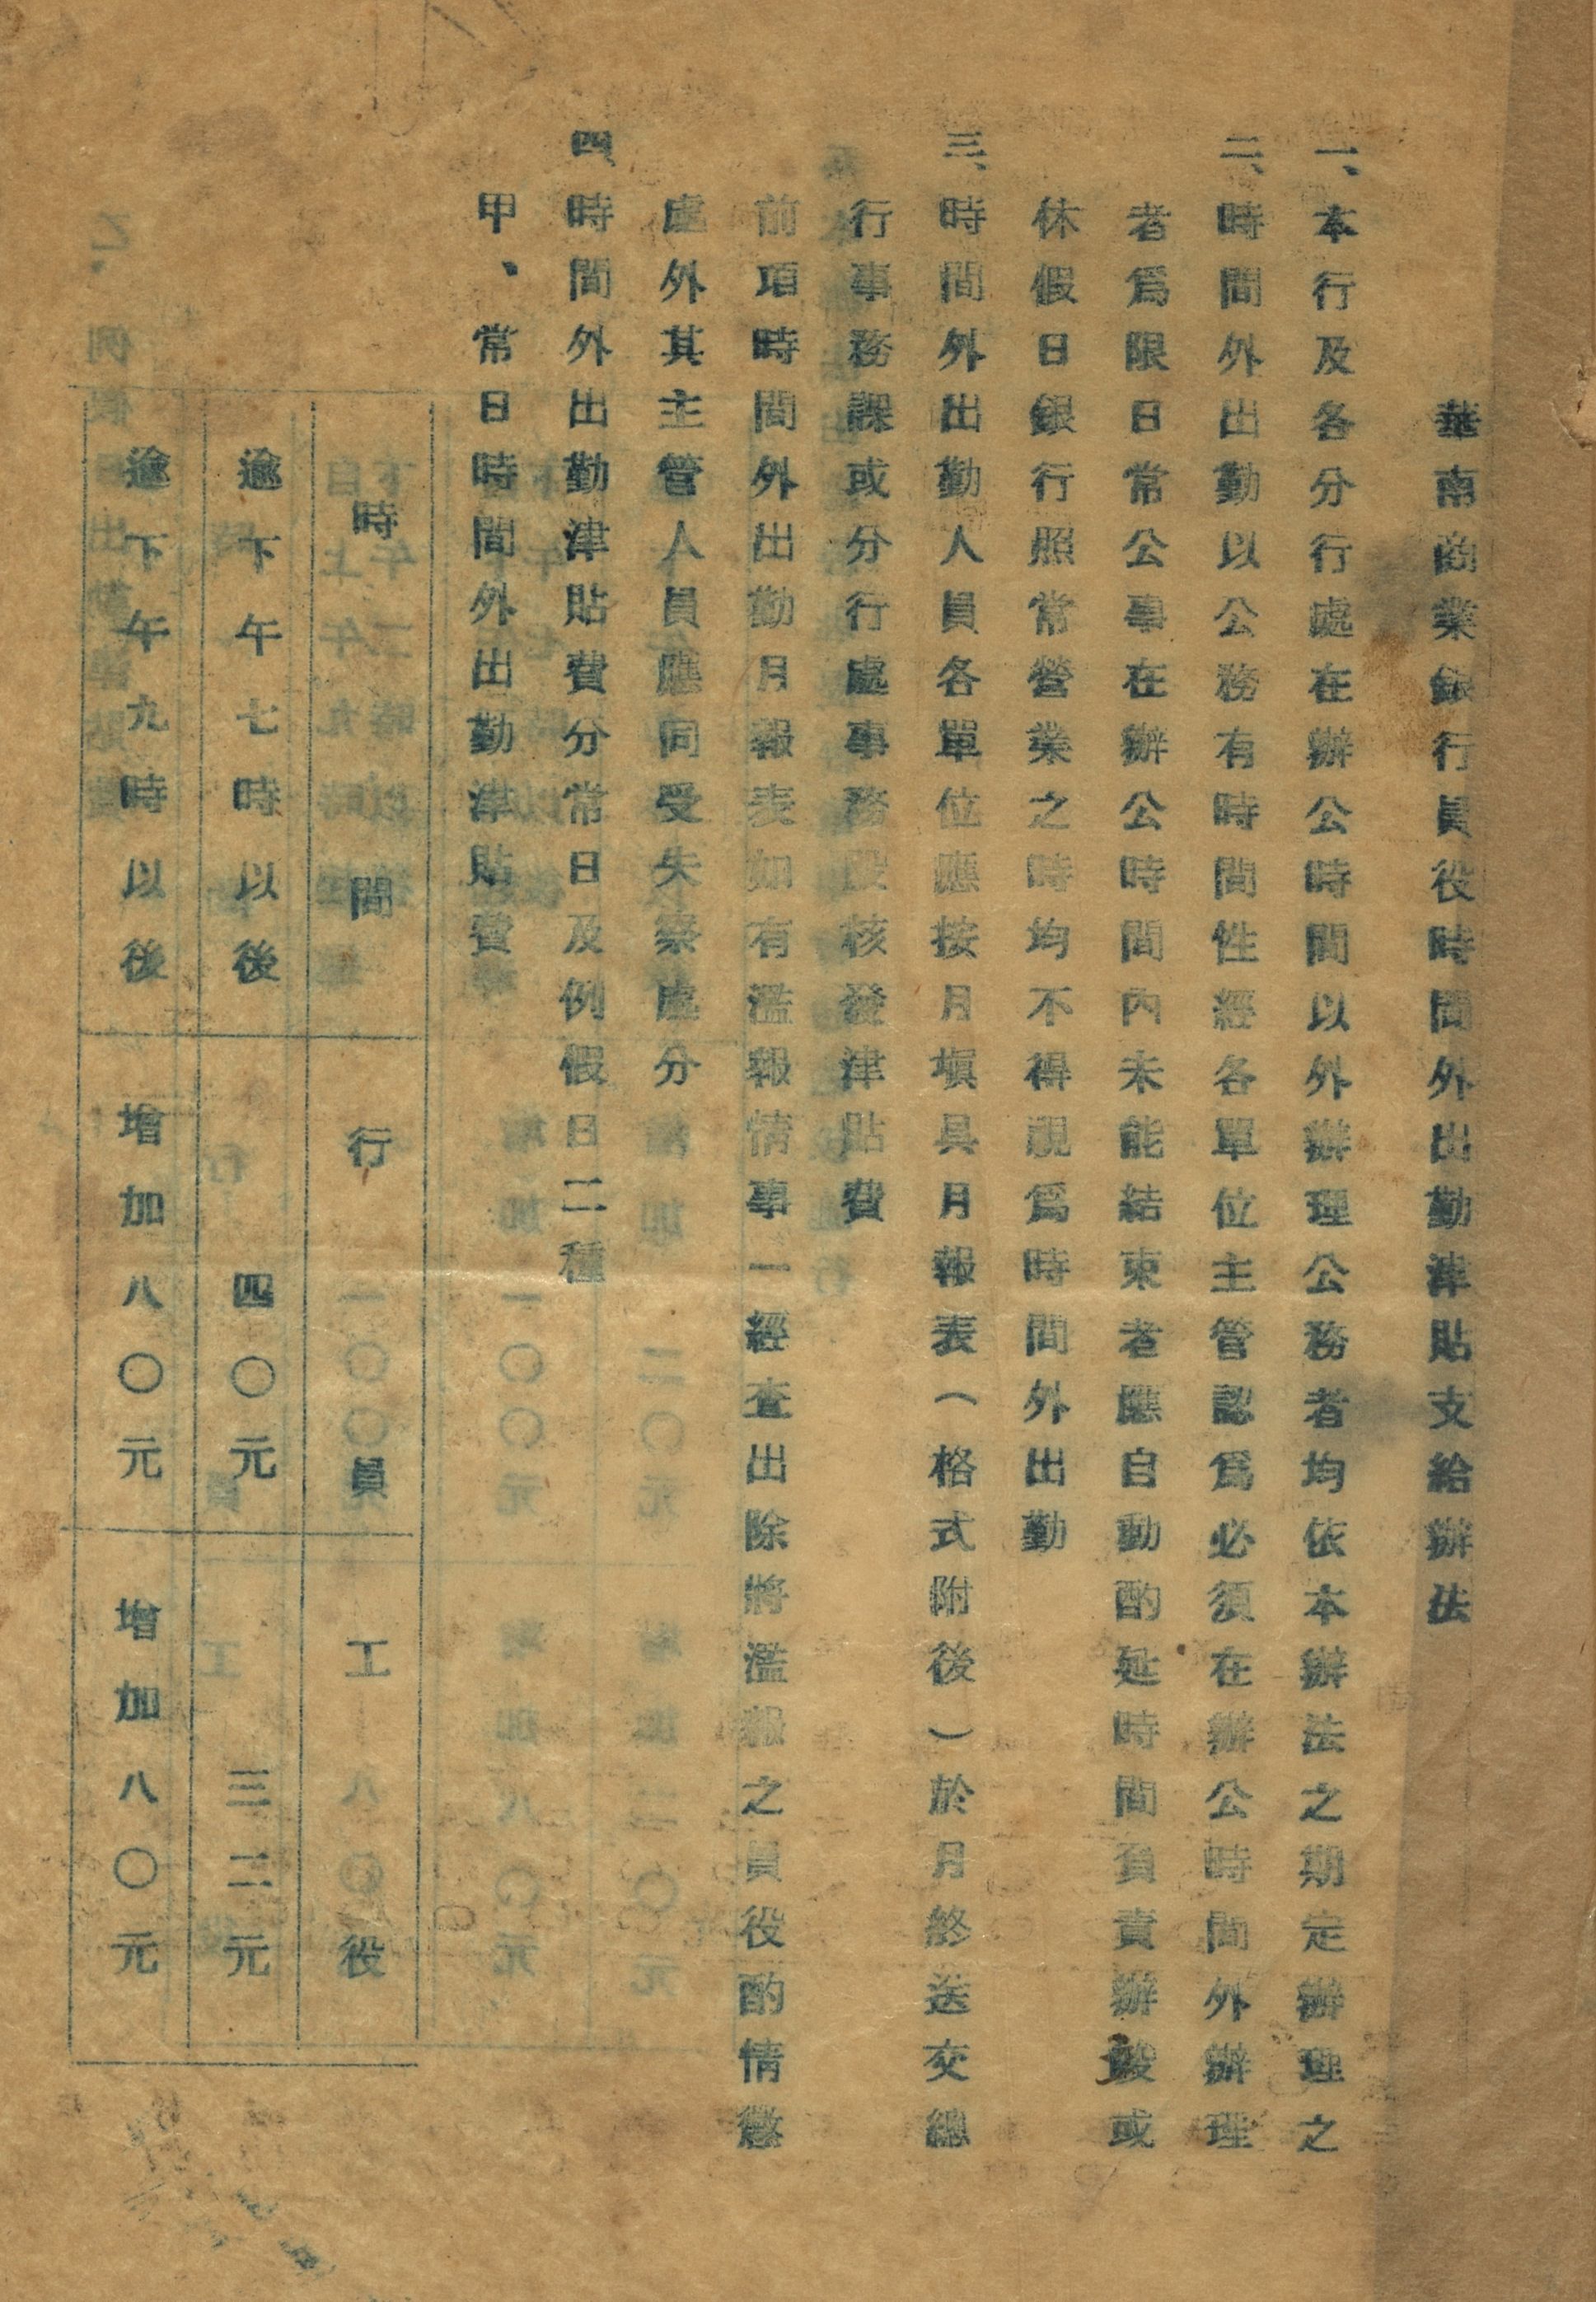 華南商業銀行員役時間外出勤津貼支給辦法
一、本行及各分行處在辦公時間以外辦理公務者均依本辦法之期定辦理之
二、時間外出勤以公務有時間性經各單位主管認爲必須在辦公時間外辦理
者爲限日常公事在辦公時間內未能結束者應自動酌延時間負責辦毀或
休假日銀行照常營業之時均不得視爲時間外出勤
三、時間外出勤人員各單位應按月塡具月報表(格式附後)於月終送交總
行事務課或分行處事務股核發津貼費
前項時間外出勤月報表如有濫報情事一經查出除將濫報之員役酌情懲
處外其主管人員應同受失察處分
四、時間外出勤津貼費分常日及例假日二種
甲、常日時間外出勤津貼費
時間 行員 工役
逾下午七時以後 四〇元 三二元
逾下午九時以後 增加八〇元 增加八〇元